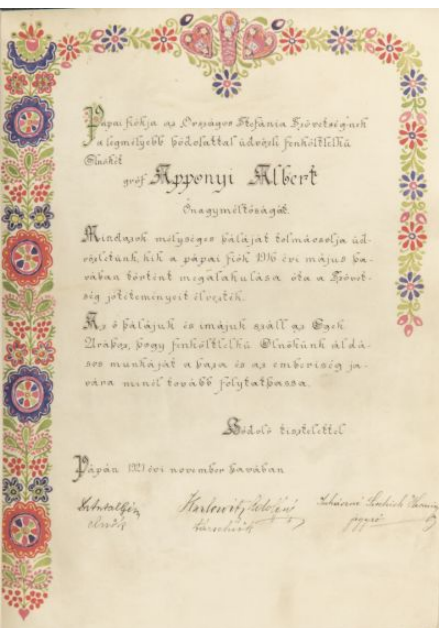 Pápai fiókja az Országos Stefánia Szövetségnek
a legmélyebb hódolattal üdvözli fenköltlelkű
Elnökét
gróf Apponyi Albert
Őnagyméltóságát.
Mindazok mélységes háláját tolmácsolja üd-
vözletünk, kik a pápai fiók 1916 évi május ha-
vában történt megalakulása óta a Szövet-
ség jótéteményeit élvezték.
Az ő hálájuk és imájuk száll az Egek
Urához, hogy fenköltlelkű Elnökünk áldá-
sos munkáját a haza és az emberiség ja-
vára minél tovább folytathassa.
Hódoló tisztelettel
Pápán 1921 évi november havában
elnök társelnök jegyző